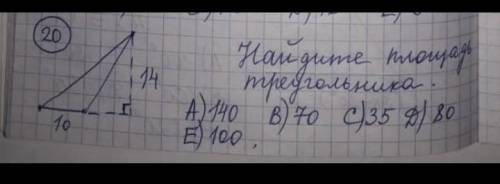 20
14
10
Найдите площадь
треугольника.
А) 140 В) 70 С) 35 Д) 80
Е) 100.